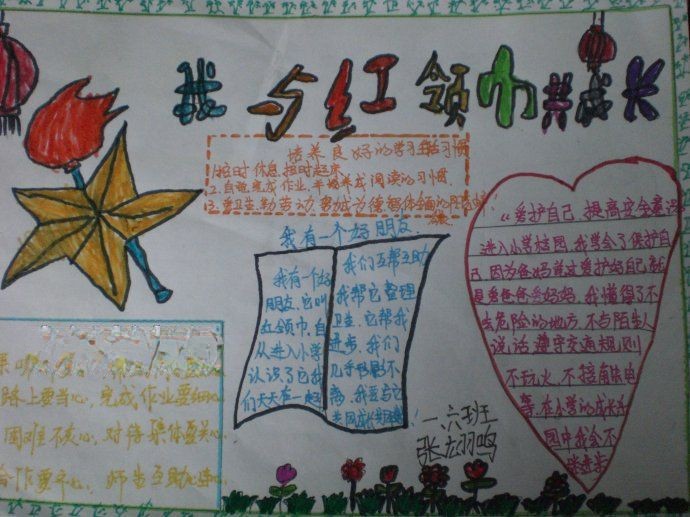 我与红领巾共成长
培养良好的学习生活习惯
1.按时休息,按时起床
2.自觉完成作业,并培养成阅读的习惯.
3.爱卫生,勤劳动,要成为德智体全面的
我有一个好朋友
我有一个好
朋友,它叫
红领巾,自
从进入小学
认识了它我
们天天在一起
我们互帮互助
我帮它整理
卫生,它帮我
进步,我们
几乎形影不
离,我要与它
共同成长
《爱护自己,提高安全意识》
进入小学校园,我学会了保护自
己,因为爸妈说过爱护好自己就
是爱爸爸爱妈妈,我懂得了不
去危险的地方,不与陌生人
说话,遵守交通规则
不玩火,不接触电
等.在小学的成长乐
园中我会不
断进步
路上要当心,完成作业要细心,
困难不灰心,对待集体要关心,
合作要齐心,师生互助心连心.
一六班
张栩鸣